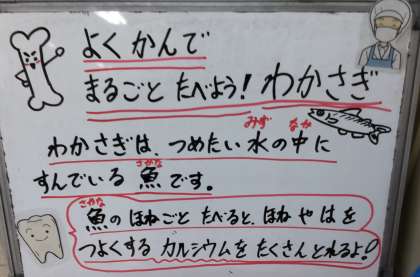 よく かんで
まるごと たべよう! わかさぎ
わかさぎは、つめたい 水の中に
みず なか
すんでいる 魚です。
さかな
魚の ほねごと たべると、ほね や は を
さかな
つよくする カルシウムを たくさん とれるよ!